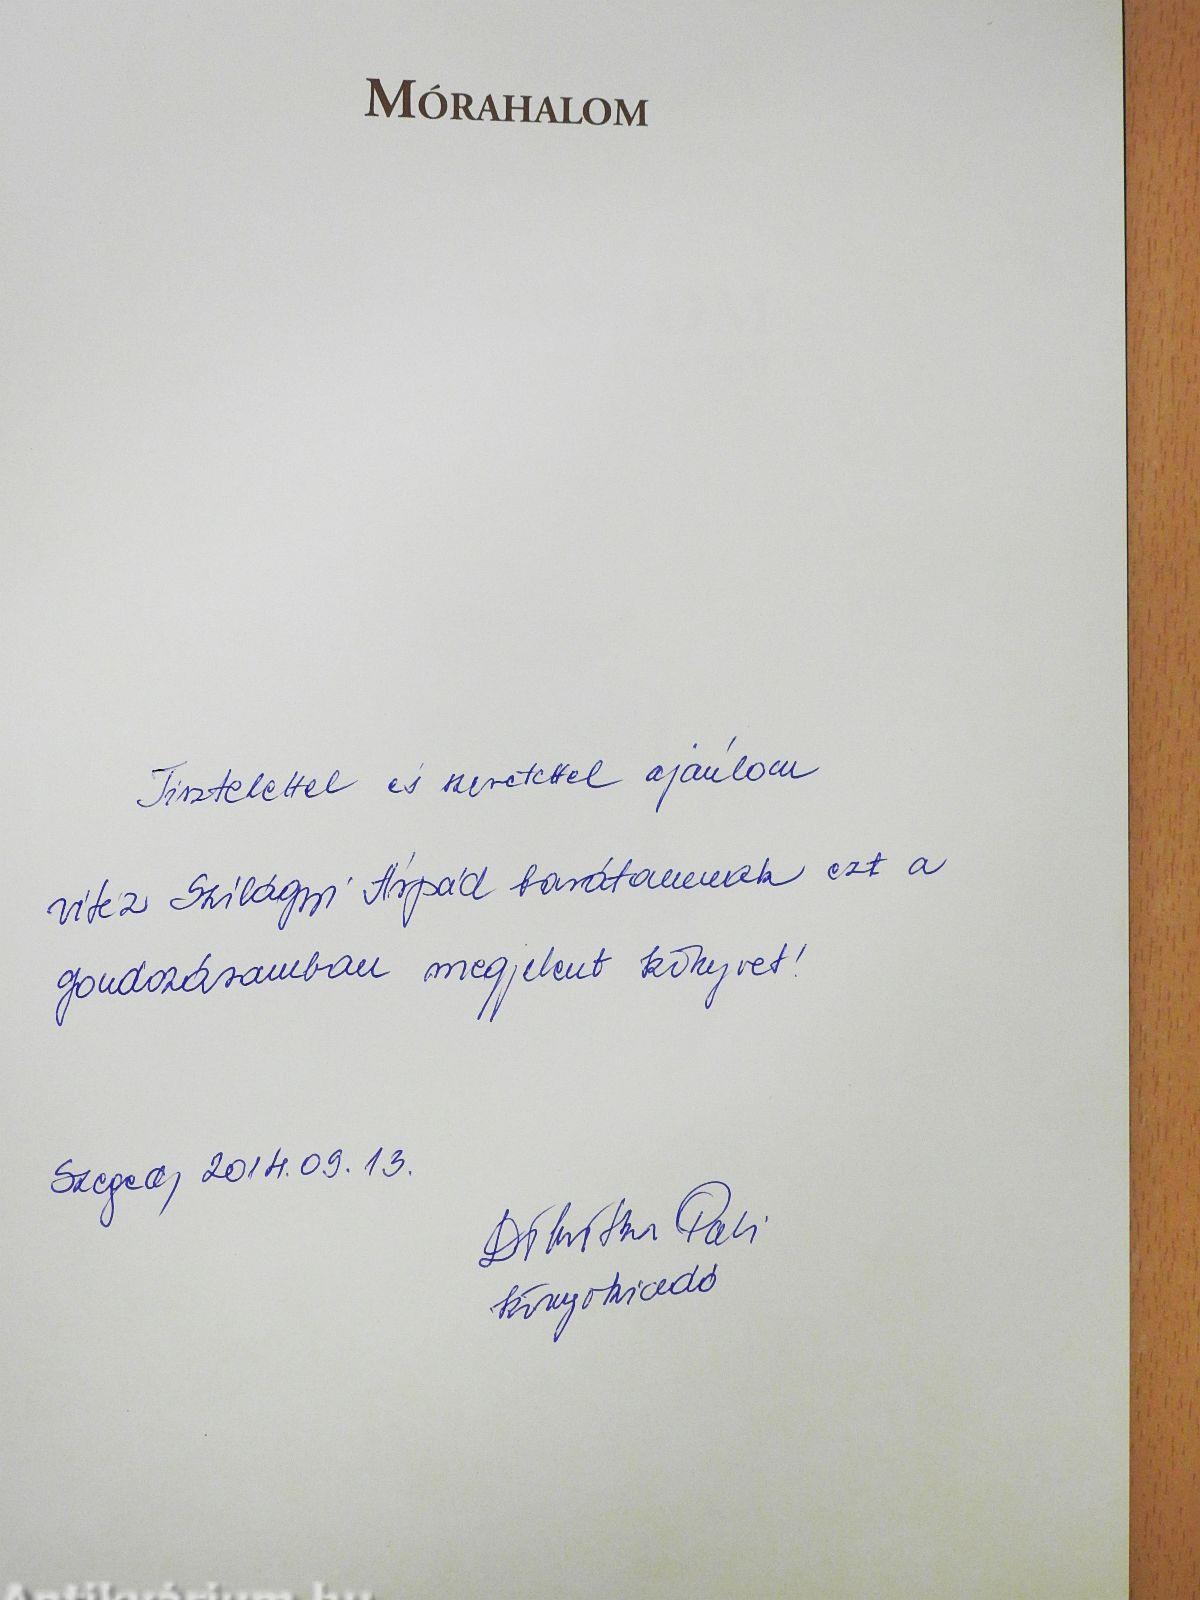 MÓRAHALOM
Tisztelettel és szeretettel ajánlom
vitéz Szilágyi Árpád barátomnak ezt a
gondozásomban megjelent könyvet!
Szeged, 2014.09.13.
Pali
könyvkiadó
Antikvárium.hu